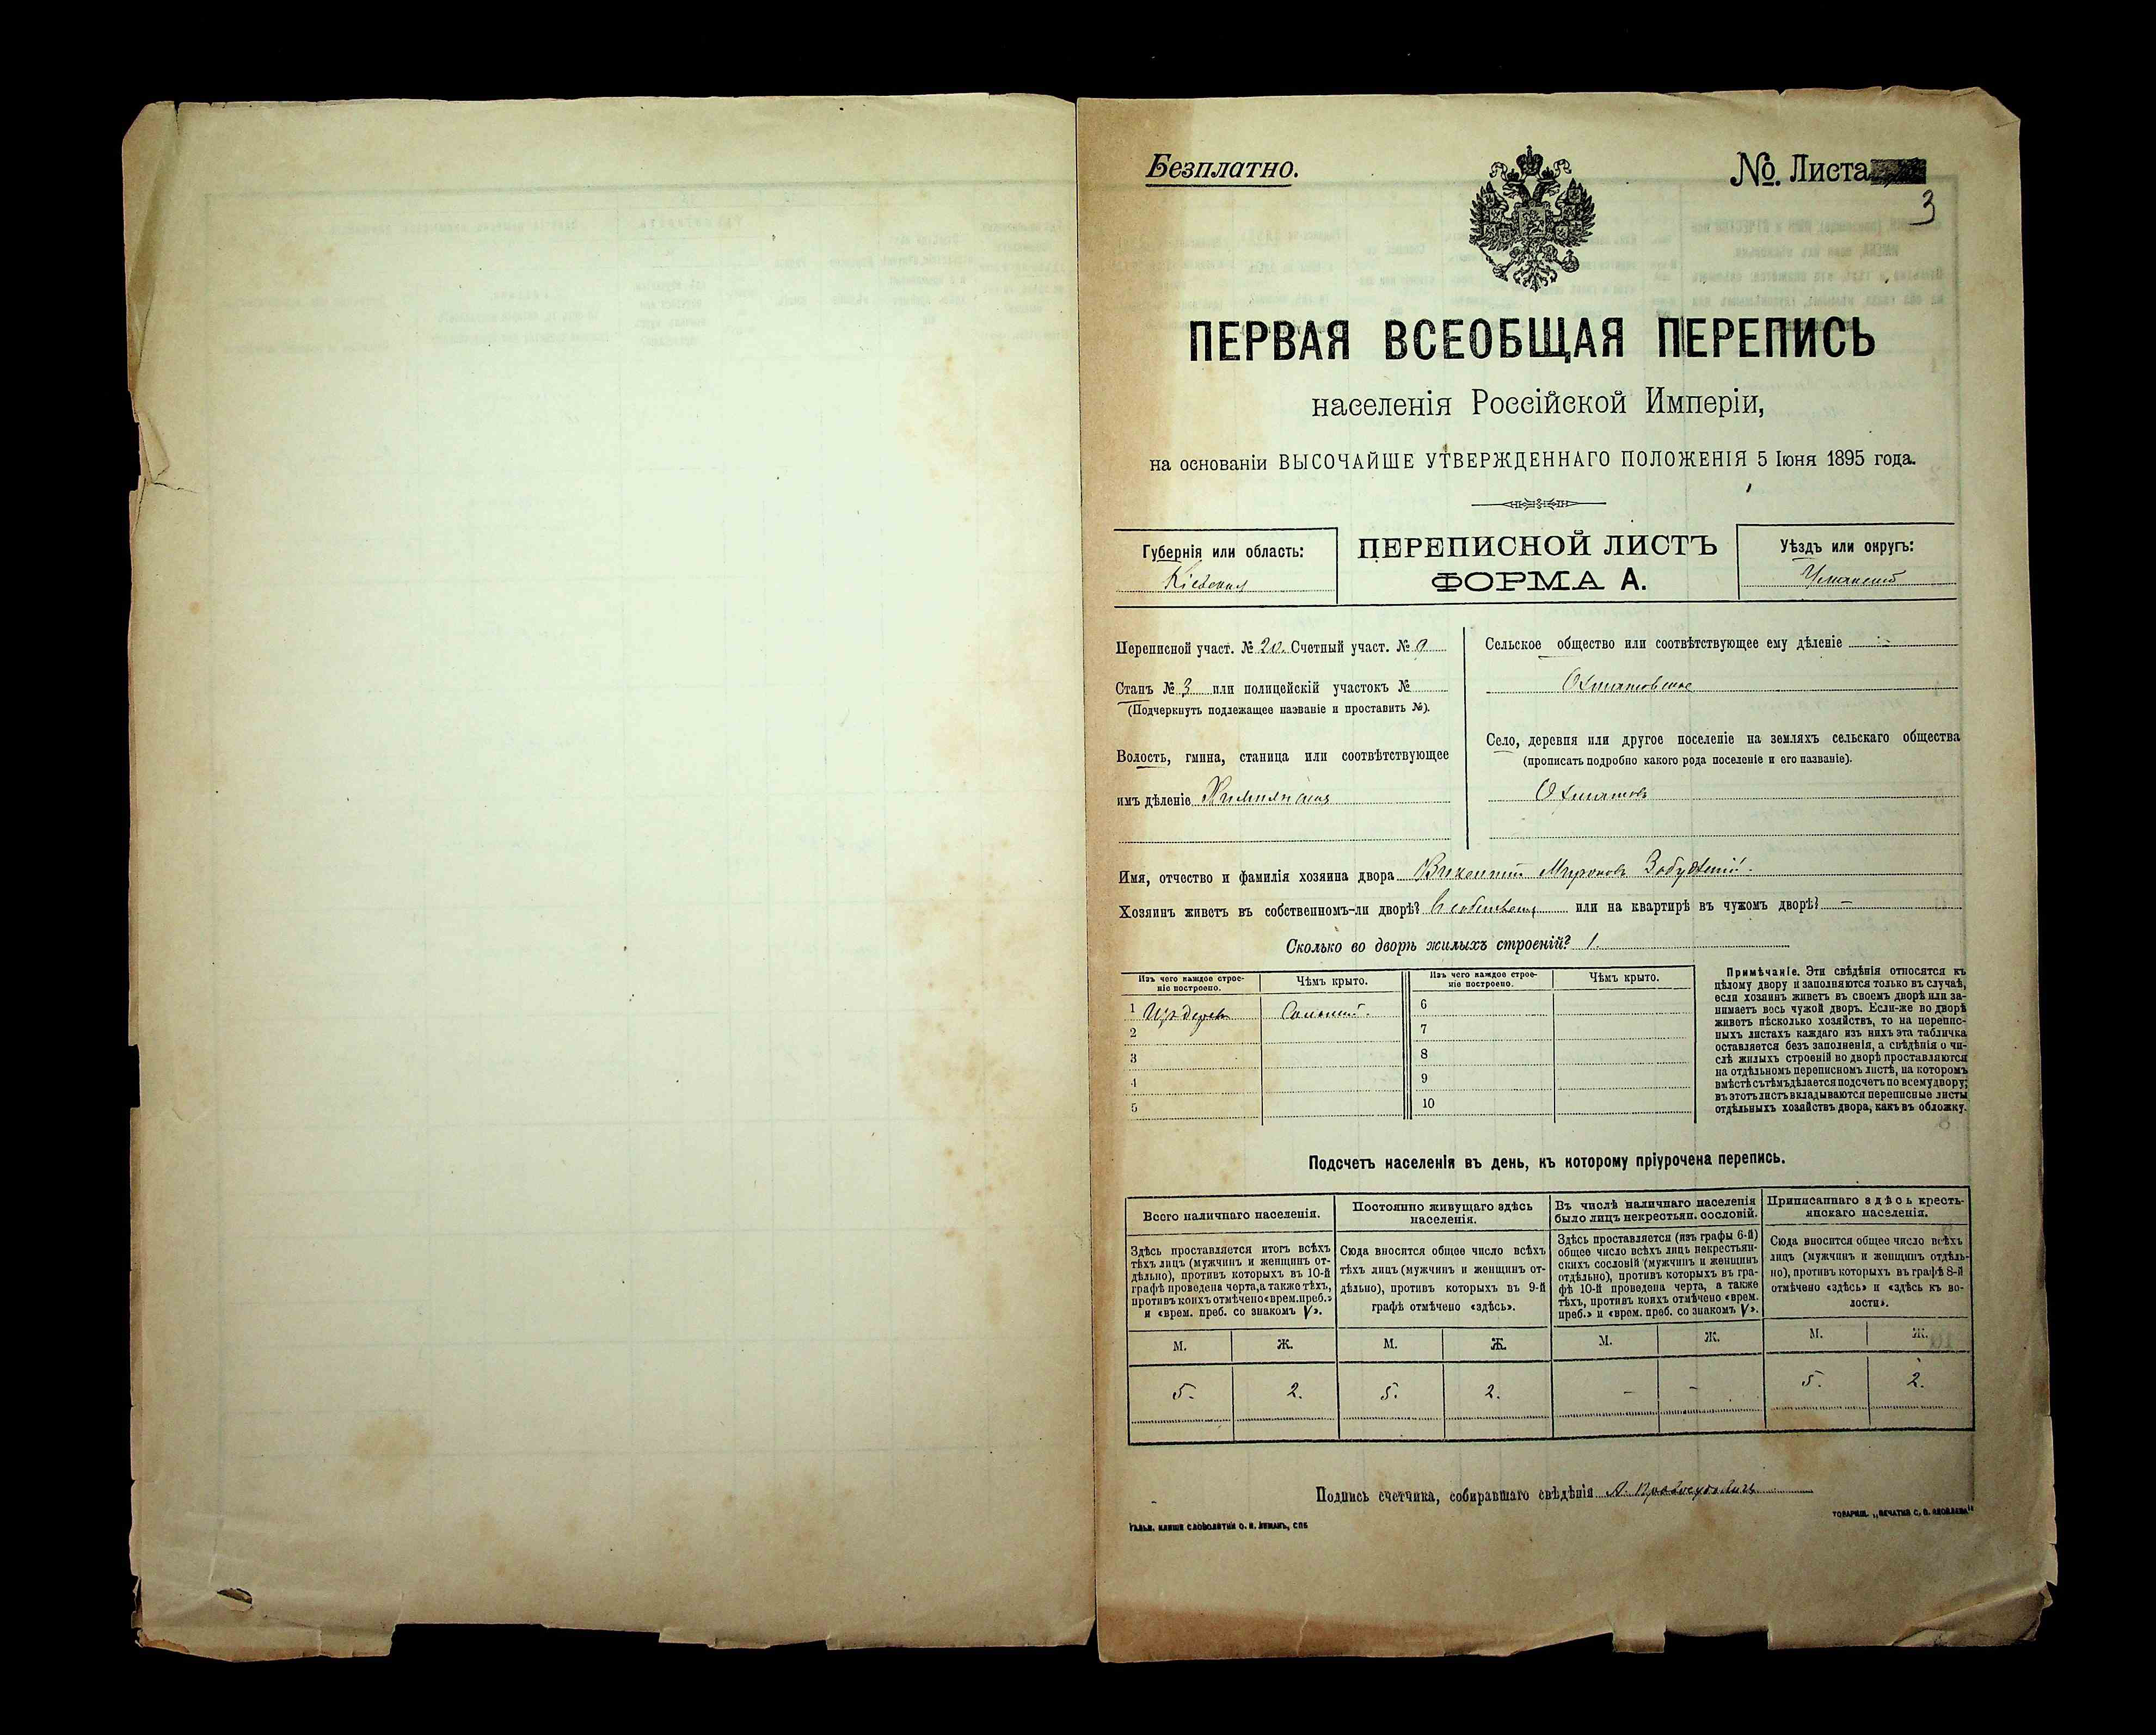 Безплатно.
№. Листа
3
ПЕРВАЯ ВСЕОБЩАЯ ПЕРЕПИСЬ
населенія Россійской Имперіи,
на основаніи ВЫСОЧАЙШЕ УТВЕРЖДЕННАГО ПОЛОЖЕНІЯ 5 Іюня 1895 года.
Губернія или область:
Кіевская
ПЕРЕПИСНОЙ ЛИСТЪ
ФОРМА А.
Уѣздъ или округъ:
Уманскій
Переписной участ. № 20. Счетный участ. №
Станъ № 3 или полицейскій участокъ №
(Подчеркнуть подлежащее названіе и проставить №).
Волость, гмина, станица или соотвѣтствующее
имъ дѣленіе
Сельское общество или соотвѣтствующее ему дѣленіе
Охматовское
Село, деревня или другое поселеніе на земляхъ сельскаго общества
(прописать подробно какого рода поселеніе и его названіе).
Охматовъ
Имя, отчество и фамилія хозяина двора Викентій Мироновъ
Хозяинъ живетъ въ собственномъ-ли дворѣ? или на квартирѣ въ чужомъ дворѣ? —
Сколько во дворѣ жилыхъ строеній? 1.
Изъ чего каждое строе-
ніе построено.
Чѣмъ крыто.
Изъ чего каждое строе-
ніе построено.
Чѣмъ крыто.
1 Изъ дерева
2
3
4
5
6
7
8
9
10
Примѣчаніе. Эти свѣдѣнія относятся къ
цѣлому двору и заполняются только въ случаѣ,
если хозяинъ живетъ въ своемъ дворѣ или за-
нимаетъ весь чужой дворъ. Если-же во дворѣ
живетъ нѣсколько хозяйствъ, то на перепис-
ныхъ листахъ каждаго изъ нихъ эта табличка
оставляется безъ заполненія, а свѣдѣнія о чи-
слѣ жилыхъ строеній во дворѣ проставляются
на отдѣльномъ переписномъ листѣ, на которомъ
вмѣстѣ съ тѣмъ дѣлается подсчетъ по всему двору;
въ этотъ листъ вкладываются переписные листы
отдѣльныхъ хозяйствъ двора, какъ въ обложку.
Подсчетъ населенія въ день, къ которому пріурочена перепись.
Всего наличнаго населенія.
Здѣсь проставляется итогъ всѣхъ
тѣхъ лицъ (мужчинъ и женщинъ от-
дѣльно), противъ которыхъ въ 10-й
графѣ проведена черта, а также тѣхъ,
противъ коихъ отмѣчено «врем. преб.»
и «врем. преб. со знакомъ V».
М. Ж.
5. 2.
Постоянно живущаго здѣсь
населенія.
Сюда вносится общее число всѣхъ
тѣхъ лицъ (мужчинъ и женщинъ от-
дѣльно), противъ которыхъ въ 9-й
графѣ отмѣчено «здѣсь».
М. Ж.
5. 2.
Въ числѣ наличнаго населенія
было лицъ некрестьян. сословій.
Здѣсь проставляется (изъ графы 6-й)
общее число всѣхъ лицъ некрестьян-
скихъ сословій (мужчинъ и женщинъ
отдѣльно), противъ которыхъ въ гра-
фѣ 10-й проведена черта, а также
тѣхъ, противъ коихъ отмѣчено «врем.
преб.» и «врем. преб. со знакомъ V».
М. Ж.
— —
Приписаннаго здѣсь кресть-
янскаго населенія.
Сюда вносится общее число всѣхъ
лицъ (мужчинъ и женщинъ отдѣль-
но), противъ которыхъ въ графѣ 8-й
отмѣчено «здѣсь» и «здѣсь къ во-
лости».
М. Ж.
5. 2.
Подпись счетчика, собиравшаго свѣдѣнія
ГАЛЬВ. КЛИШЕ СЛОВОЛИТНИ О. И. ЛЕМАНЪ, СПБ
ТОВАРИЩ. „ПЕЧАТНЯ С. П. ЯКОВЛЕВА"